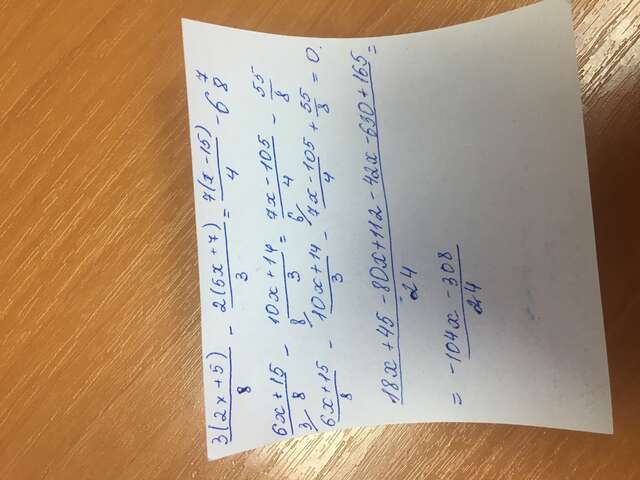 3(2x+5)/8 - 2(5x+7)/3 = 7(x-15)/4 - 6 7/8
6x+15/8 - 10x+14/3 = 7x-105/4 - 55/8
3/ 8/ 6/
6x+15/8 - 10x+14/3 - 7x-105/4 + 55/8 = 0.
18x+45-80x+112-42x-630+165/24 =
= -104x-308/24